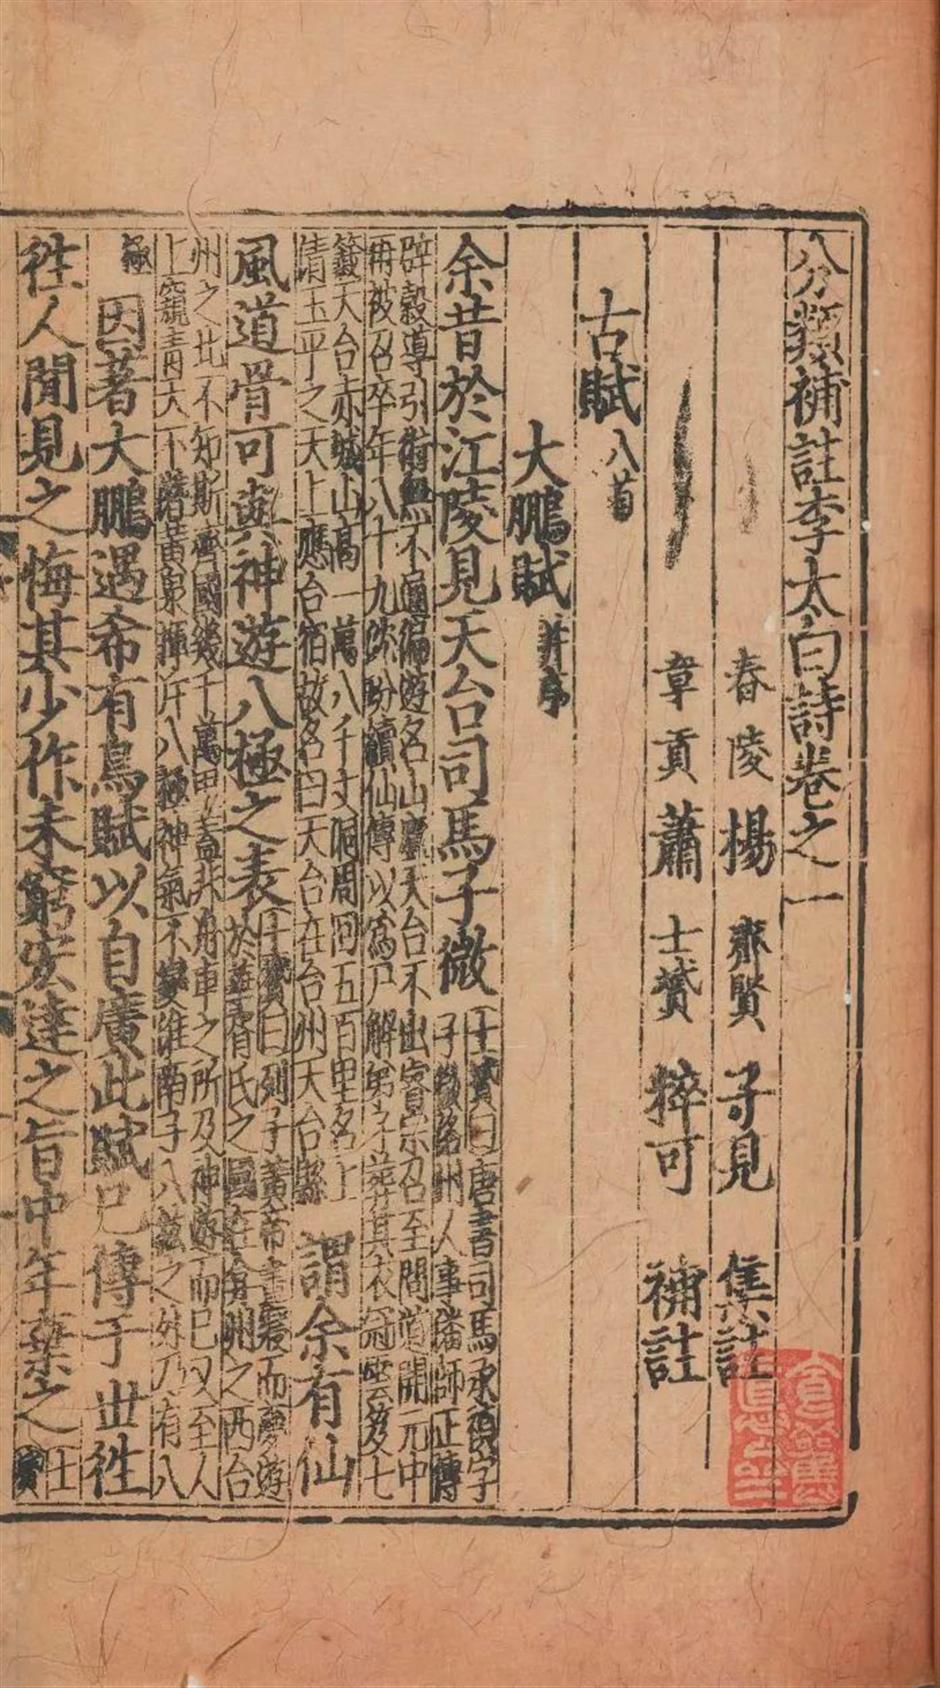 分類補註李太白詩卷之一
舂陵楊齊賢子見集註
章貢蕭士贇粹可補註
古賦八首
大鵬賦并序
余昔於江陵見天台司馬子微
士贇曰唐書司馬承禎字
子微洛州人事潘師正傳
辟穀導引術無不通徧遊名山廬天台不出睿宗召至問道開元中
再被召卒年八十九 續仙傳以爲尸解弟子葬其衣冠雲笈七
籖天台赤城山高一萬八千丈洞周回五百里名上
清玉平之天上應台宿故名曰天台在台州天台縣
謂余有仙
風道骨可與神遊八極之表
士贇曰列子黃帝晝寢而夢遊
於華胥氏之國在弇州之西台
州之北不知斯齊國幾千萬里蓋非舟車之所及神遊而已又至人
上窺青天下潛黃泉揮斥八極神氣不變淮南子八紘之外乃有八
極
因著大鵬遇希有鳥賦以自廣此賦已傳于世徃
徃人間見之悔其少作未窮宏達之旨中年棄之
士
贇